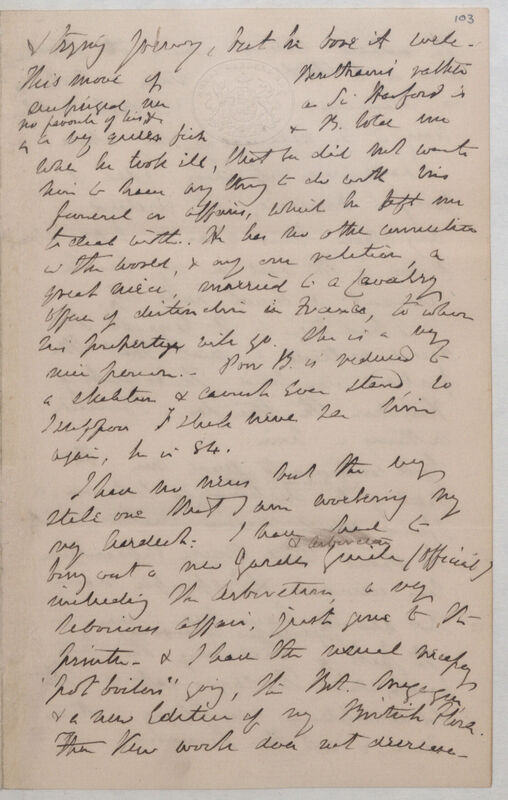 103
& trying journey, but he bore it well –
This move of Bentham's rather
surprised me as Sr. Harford is
no favourite of his &
is a very queer fish & B. told me
when he took ill, that he did not want
him to have any thing to do with his
funeral or affairs, which he left me
to deal with. He has no other connection
in the world, & only one relation, a
great niece, married to a Cavalry
officer of distinction in France, to whom
his property will go. She is a very
nice person. – Poor B. is reduced to
a skeleton & cannot even stand, so
I suppose I shall never see him
again, he is 84.
I have no news but the very
stale one that I am working my
very hardest: I have had to
bring out a new Garden Guide (official)
& arboretum
including the Arboretum, a very
laborious affair, just gone to the
printer – & I have the usual
"pot boilers" going, the Bot. Magazine
& a new Edition of my British Flora.
The Kew work does not decrease –